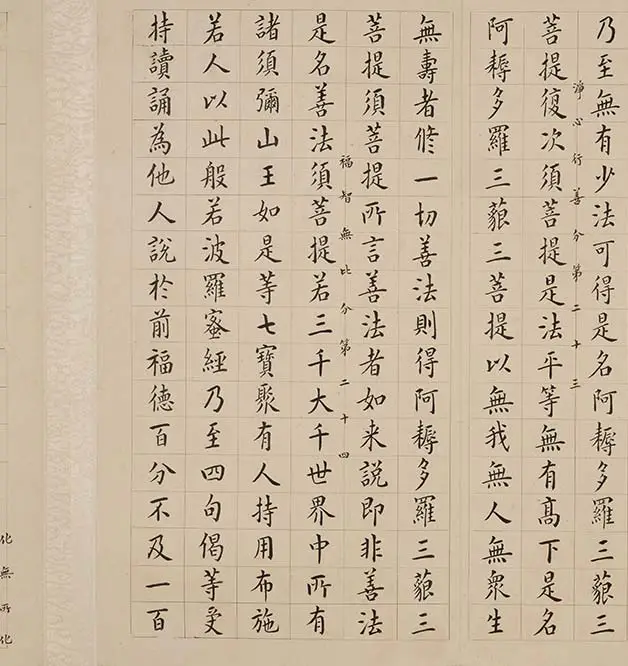 乃至無有少法可得是名阿耨多羅三藐三
淨心行善分第二十三
菩提復次須菩提是法平等無有髙下是名
阿耨多羅三藐三菩提以無我無人無衆生
無壽者修一切善法則得阿耨多羅三藐三
菩提須菩提所言善法者如来說即非善法
福智無比分第二十四
是名善法須菩提若三千大千世界中所有
諸須彌山王如是等七寶聚有人持用布施
若人以此般若波羅蜜經乃至四句偈等受
持讀誦為他人說於前福德百分不及一百
化無所化